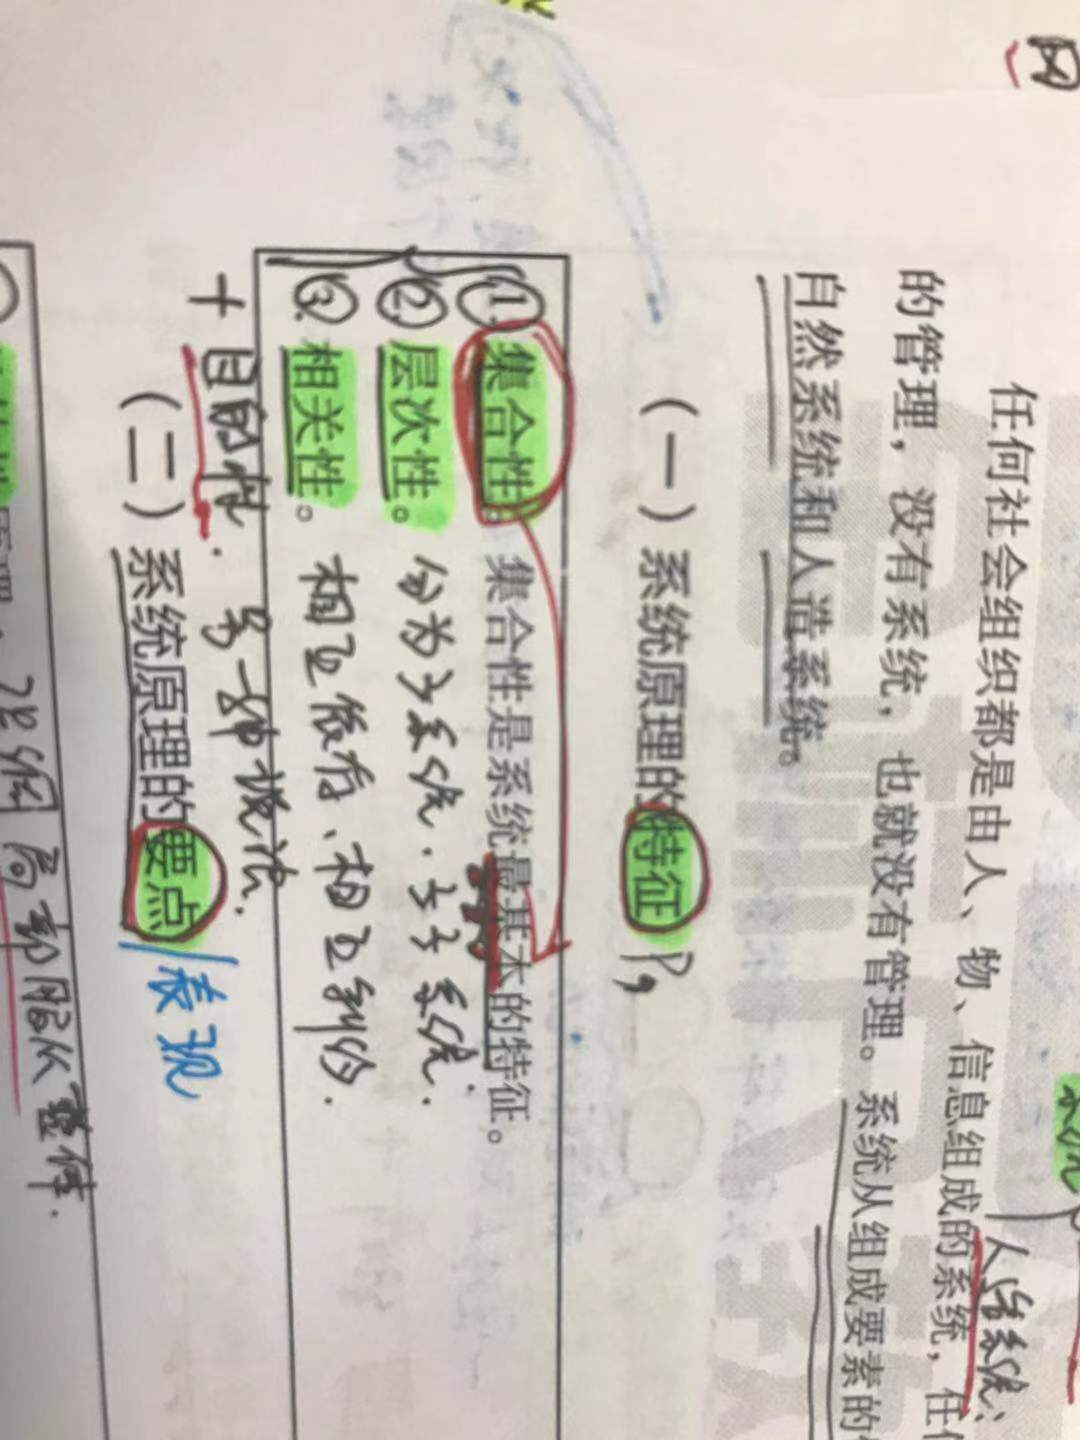 因
人造系统;
任何社会组织都是由人、物、信息组成的系统，任
的管理，没有系统，也就没有管理。系统从组成要素的
自然系统和人造系统。
（一）系统原理的特征
① 集合性。集合性是系统最基本的特征。
② 层次性。分为子系统.子子系统.
③ 相关性。相互依存、相互制约.
+ 目的性.另一种说法.
（二）系统原理的要点/表现
局部服从整体.